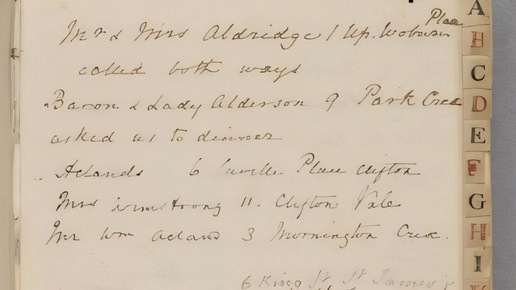 Mr & Mrs Aldridge 1 Up. Woburn Place
called both ways
Baron & Lady Alderson 9 Park Cres
asked us to dinner
Aclands 6 Place Clifton
Mrs Armstrong 11. Clifton Vale
Mr Wm Acland 3 Mornington Cres.
6 King St. St.
A
B
C
D
E
F
G
H
I